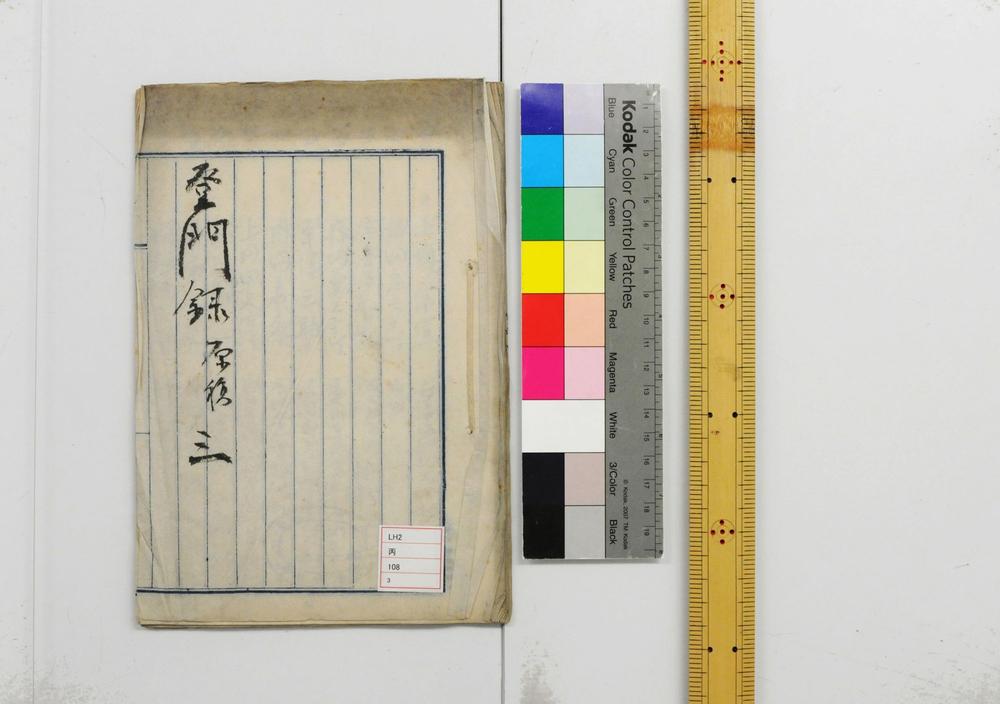 登門録原稿 三
LH2
丙
108
3
Kodak Color Control Patches
© Kodak, 2007 TM: Kodak
Blue
Cyan
Green
Yellow
Red
Magenta
White
3/Color
Black
1
2
3
4
5
6
7
8
9
10
11
12
13
14
15
16
17
18
19